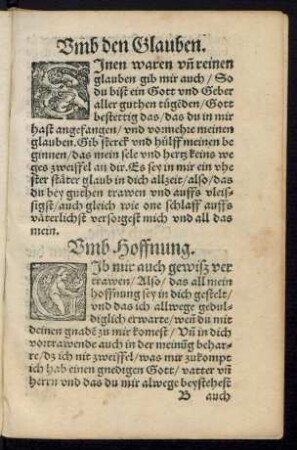 Vmb den Glauben.
EInen waren vñ reinen
glauben gib mir auch / So
du bist ein Gott vnd Geber
aller guthen tügẽden / Gott
bestettig das / das du in mir
hast angefangen / vnd vormehre meinen
glauben. Gib sterck vnd hülff meinen be
ginnen / das mein sele vnd hertz keins we
ges zweiffel an dir. Es sey in mir ein vhe
ster stäter glaub in dich allzeit / also / das
du bey guthen trawen vnd auffs vleis-
sigst / auch gleich wie one schlaff auffs
väterlichst versorgest mich vnd all das
mein.
Vmb Hoffnung.
GIb mir auch gewisz ver
trawen / Also / das all mein
hoffnung sey in dich gestelt /
vnd das ich allwege gedul-
diglich erwarte / weñ du mit
deinen gnadẽ zu mir komest / Vñ in dich
vortrawende auch in der meinũg behar-
re / dz ich nit zweiffel / was mir zukompt
ich hab einen gnedigen Gott / vatter vñ
herrn vnd das du mir alwege beystehest
B auch